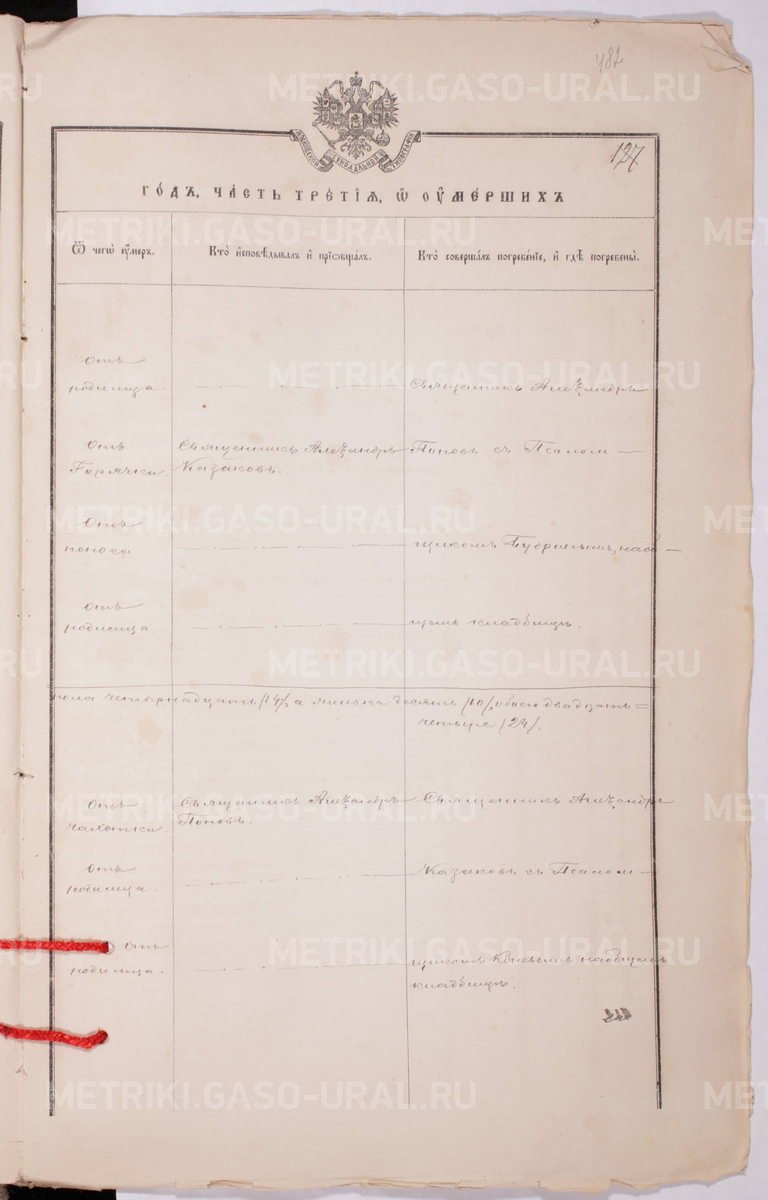 482
127
МОСКОВСКОЙ СУНОДАЛЬНОЙ ТИПОГРАФІИ
ГО́ДЪ, ЧА́СТЬ ТРЕ́ТІѦ, Ѿ ОУМЕ́РШИХЪ
Ѿ чегѡ̀ оу́меръ.
Кто̀ и҆сповѣ́дывалъ и҆ прїѡбща́лъ.
Кто̀ соверша́лъ погребе́нїе, и҆ гдѣ̀ погребены̀.
отъ
родимца.
Священникъ Алеѯандръ
отъ
Горячки
Священникъ Алеѯандръ
Казаковъ.
Поповъ съ Псалом-
отъ
поноса
щикомъ Бубринымъ, на об-
отъ
родимца
щемъ кладбищѣ.
пола четырнадцать /14/, а женска десять /10/, обоего двадцать=
четыре /24/.
отъ
чахотки.
Священникъ Алеѯандръ
Поповъ.
Священникъ Алеѯандръ
отъ
родимца.
Казаковъ съ Псалом-
отъ
родимца.
щикомъ на общемъ
кладбищѣ.
METRIKI.GASO-URAL.RU